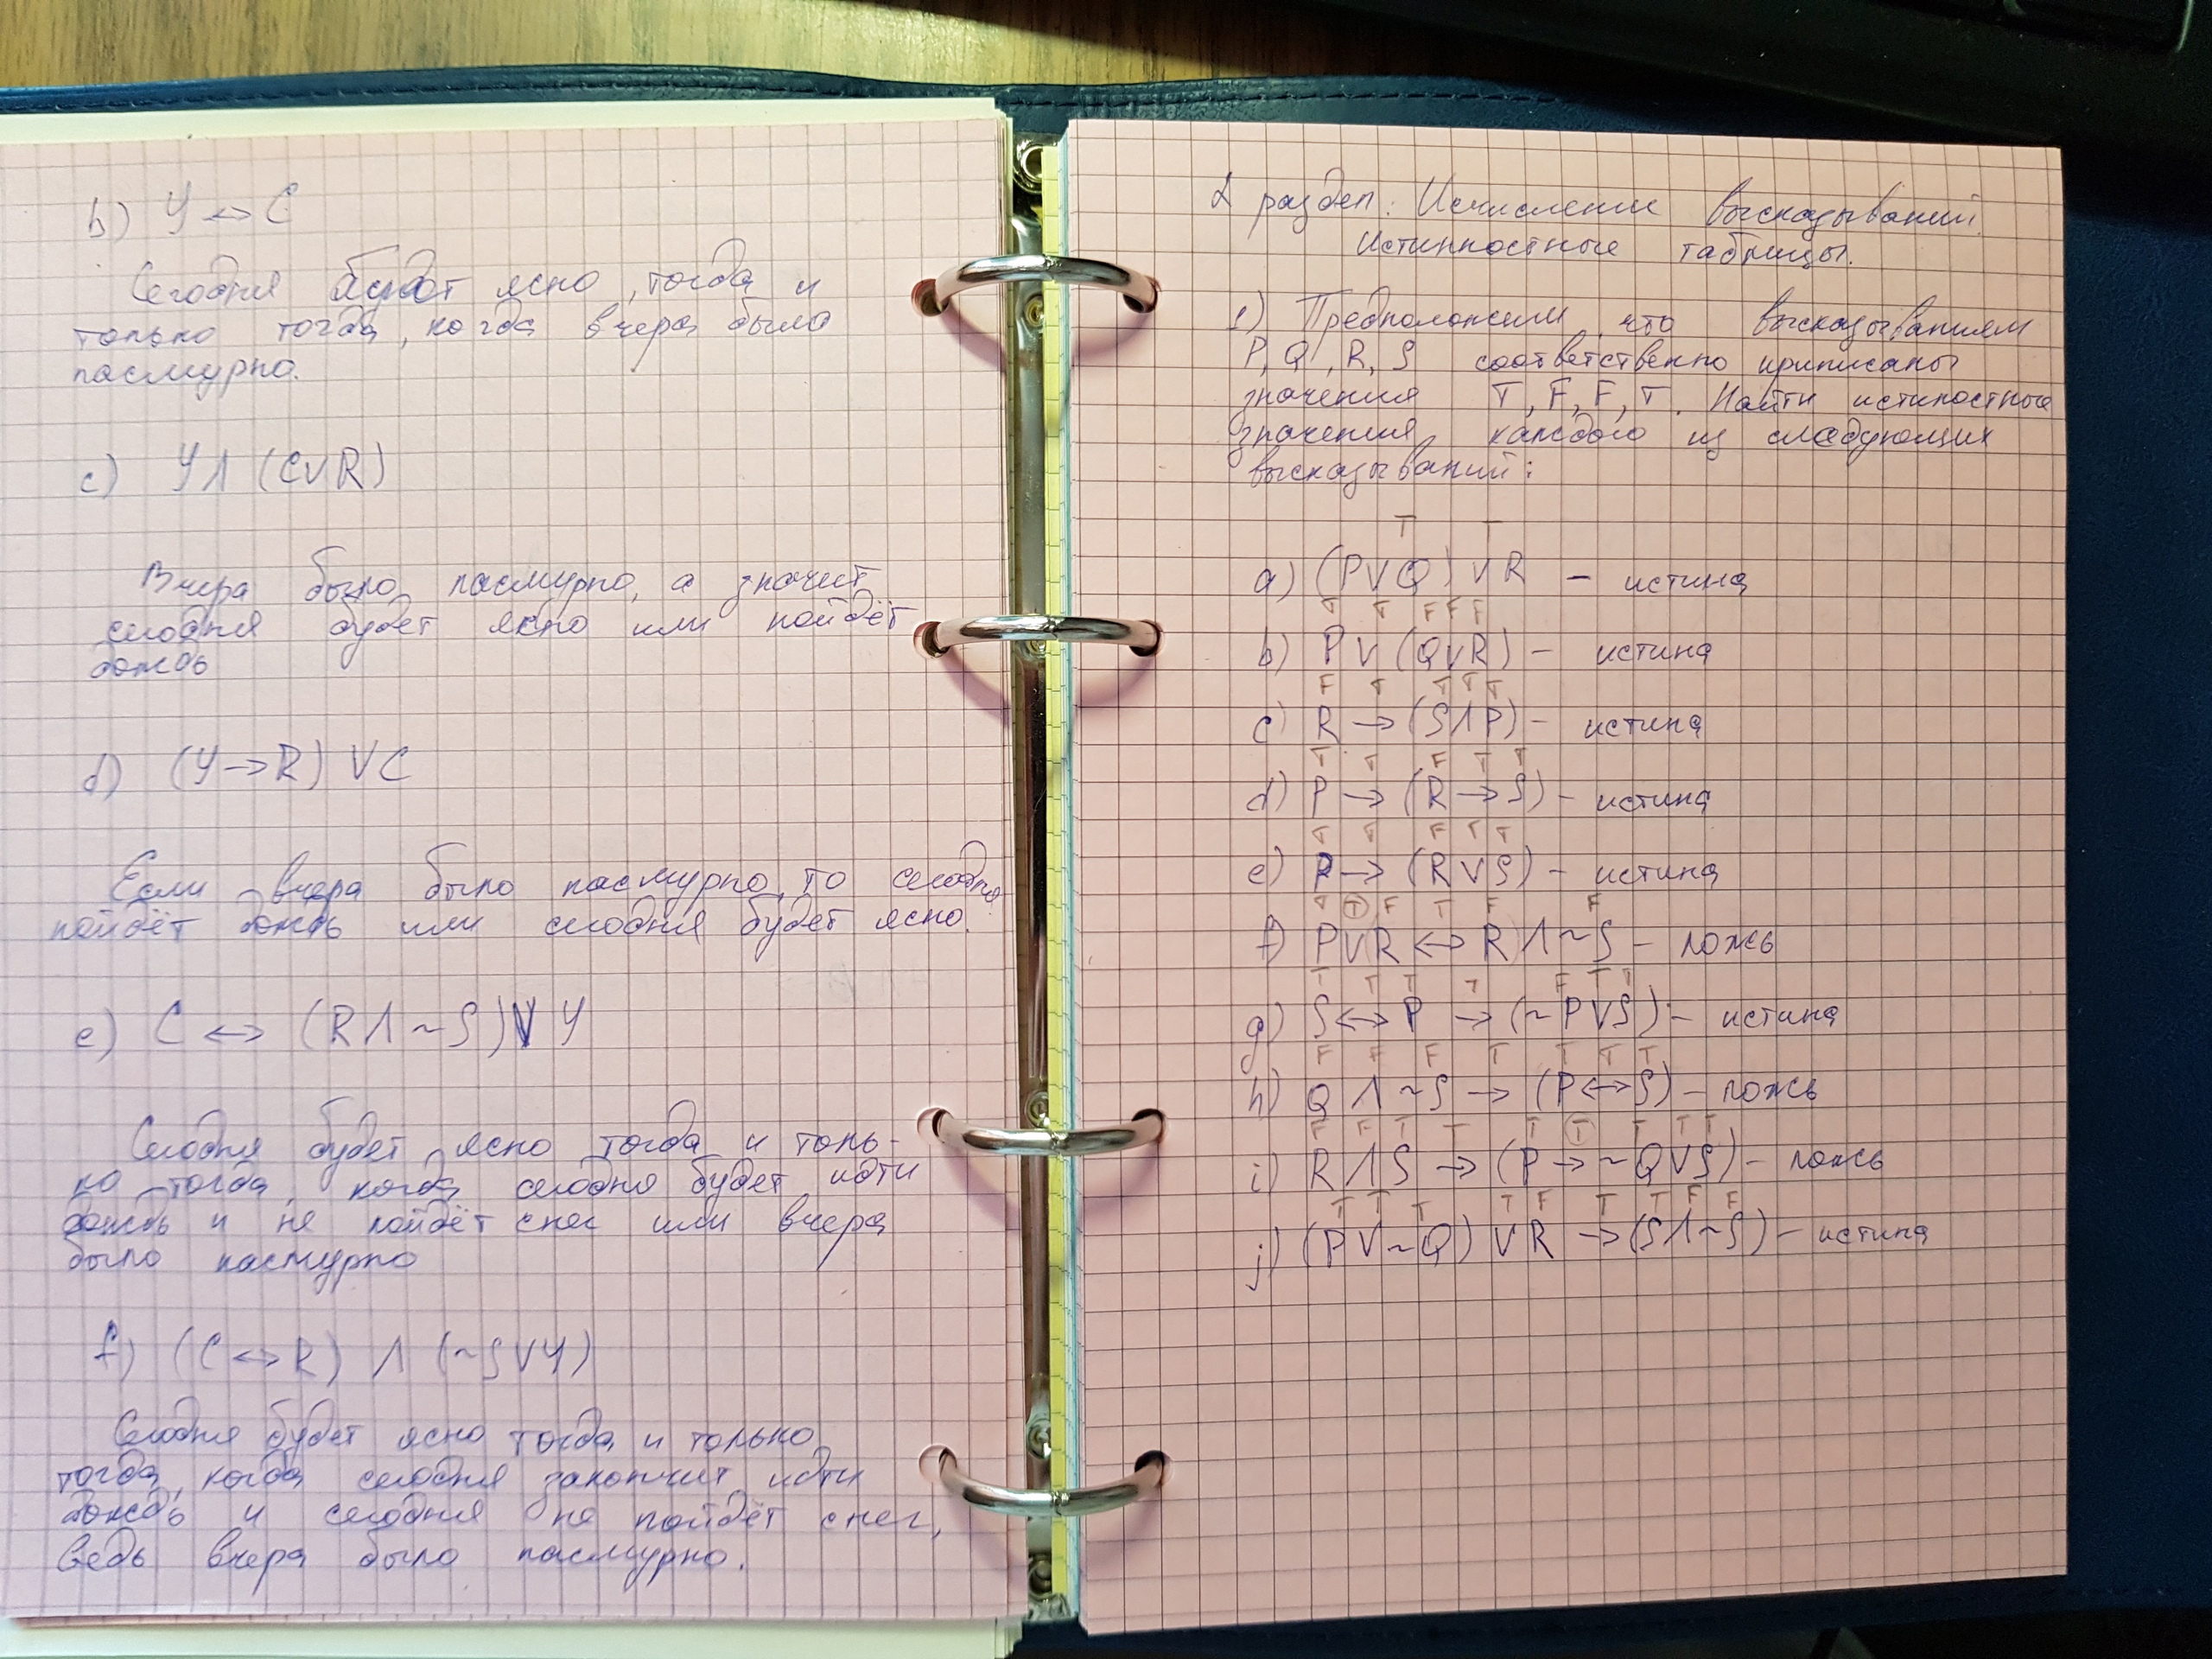 b) Y ↔ C
Сегодня будет ясно, тогда и
только тогда, когда вчера было
пасмурно.
c) Y Λ (C V R)
Вчера было пасмурно, а значит
сегодня будет ясно или пойдёт
дождь
d) (Y → R) V C
Если вчера было пасмурно, то сегодня
пойдёт дождь или сегодня будет ясно.
e) C ↔ (R Λ ~ S) V Y
Сегодня будет ясно тогда и толь-
ко тогда, когда сегодня будет идти
дождь и не пойдёт снег или вчера
было пасмурно
f) (C ↔ R) Λ (~ S V Y)
Сегодня будет ясно тогда и только
тогда, когда сегодня закончит идти
дождь и сегодня не пойдёт снег,
ведь вчера было пасмурно.
2 раздел: Исчисление высказываний.
Истинностные таблицы.
1) Предположим, что высказываниям
P, Q, R, S соответственно приписаны
значения T, F, F, T. Найти истиностные
значения каждого из следующих
высказываний:
T T
a) (P V Q) V R – истина
T T F F F
b) P V (Q V R) – истина
F T T T T
c) R → (S Λ P) – истина
T T F T T
d) P → (R → S) – истина
T T F T T
e) P → (R V S) – истина
T T F T F F
f) P V R ↔ R Λ ~ S – ложь
T T T T F T T
g) S ↔ P → (~ P V S) – истина
F F F T T T T
h) Q Λ ~ S → (P ↔ S) – ложь
F F T T T T T T T
i) R Λ S → (P → ~ Q V S) – ложь
T T T T F T T F F
j) (P V ~ Q) V R → (S Λ ~ S) – истина